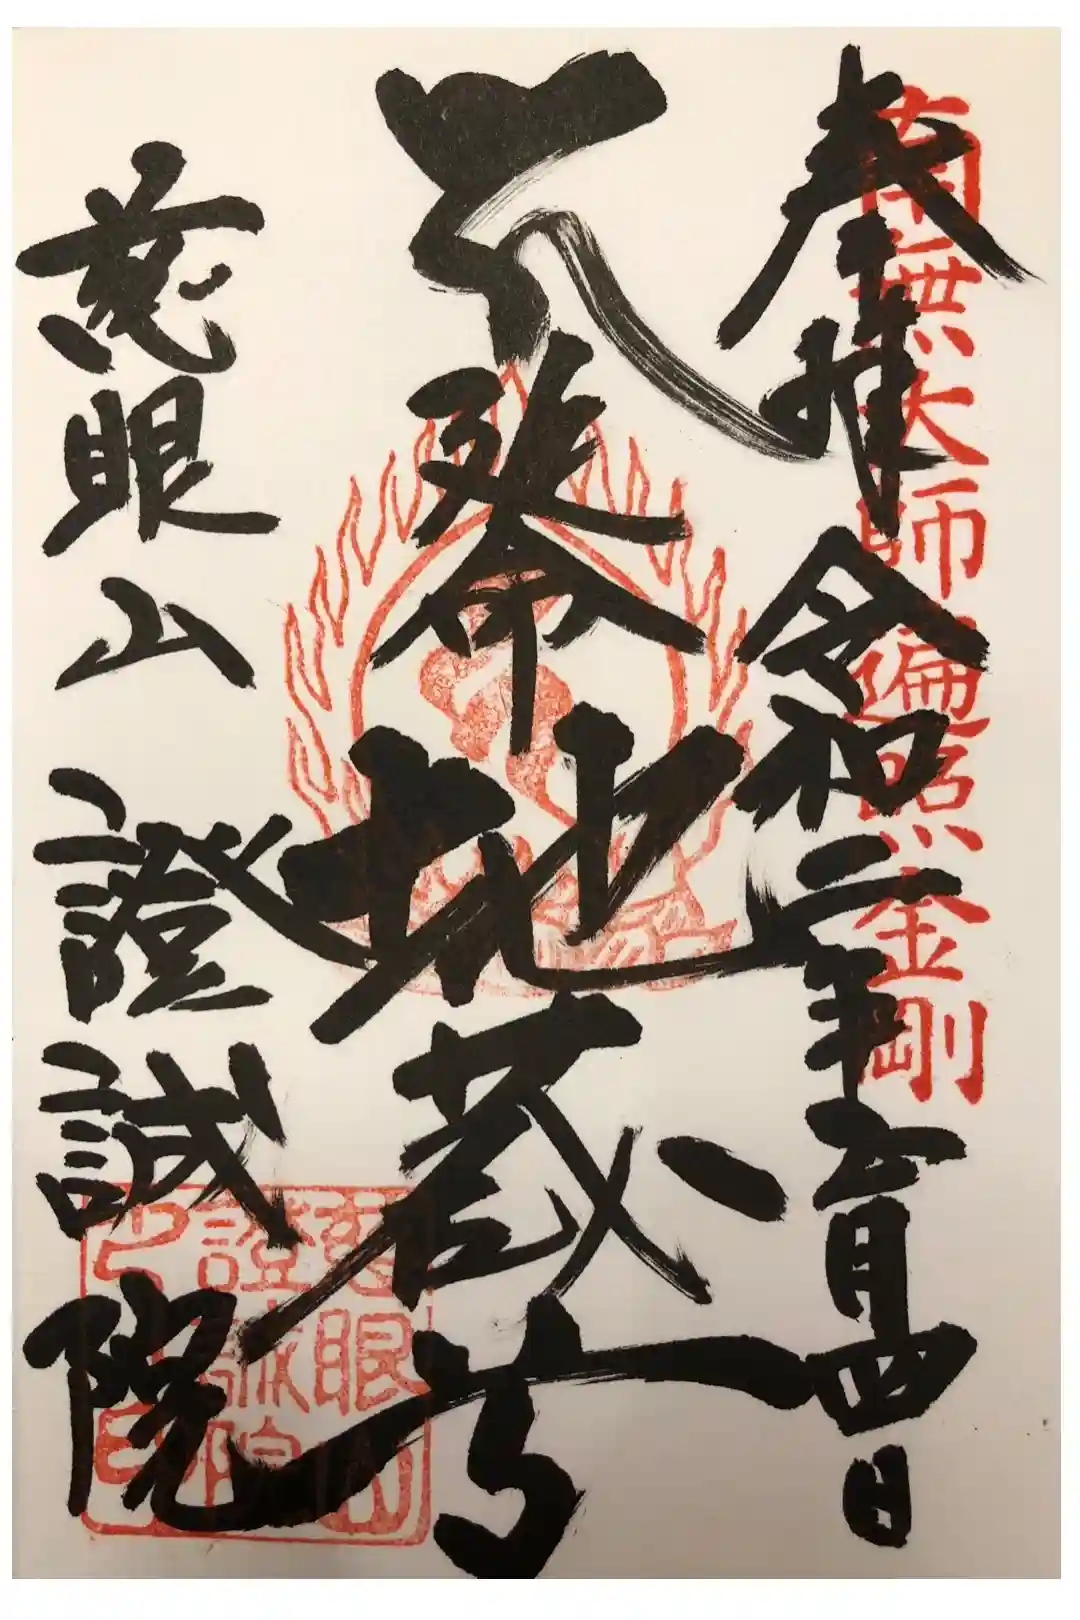 南無大師遍照金剛
奉拝 令和二年六月四日
延命地蔵尊
慈眼山 證誠院
慈眼山
證誠院
之印